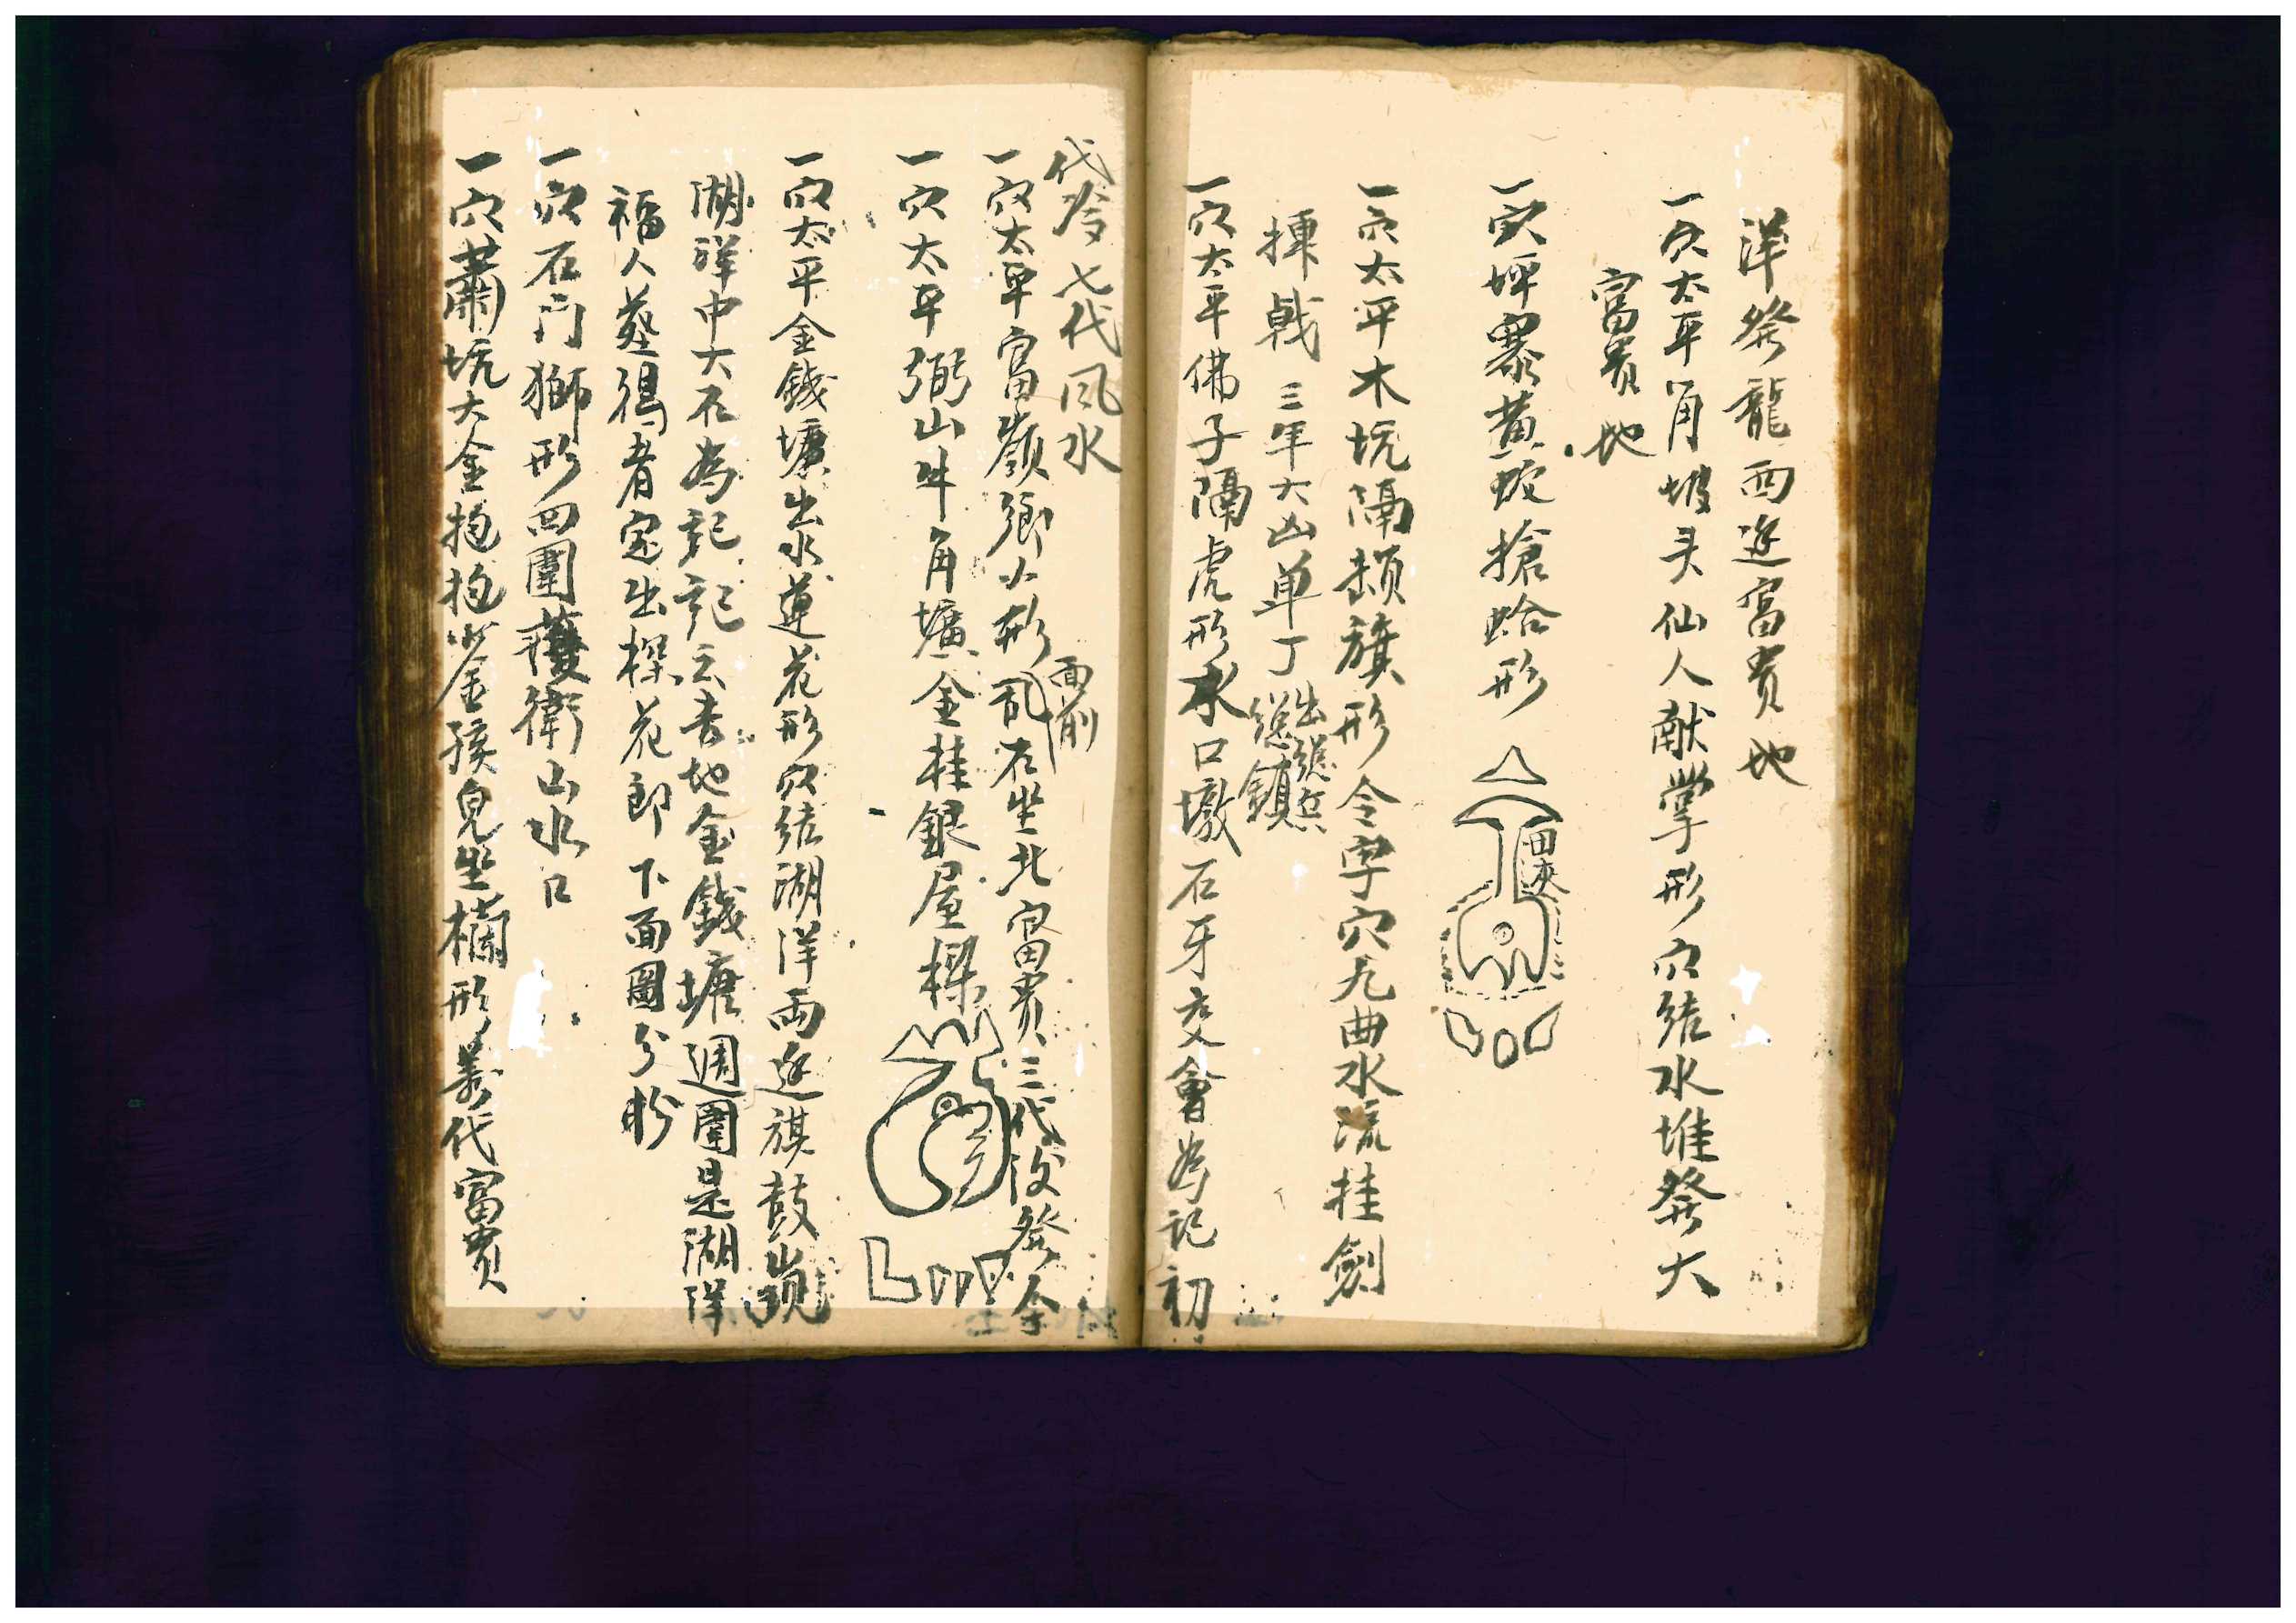 洋發龍西边富貴地
一穴太平角坡头仙人献掌形穴结水堆發大
富貴地
一穴坪寨黄蛇搶蛤形
田夾
一穴太平木坑隔頳旗形令字穴九曲水流挂劍
揀戟三年大凶单丁
出總兵
總鎮
一穴太平佛子隔虎形水口墩石牙交會為記初
代發七代风水
一穴太平富嶺鄉火形乱石坐北富貴三代後發余
面前
一穴太平獅山牛角壙金挂銀屋樑
一穴太平金錢塘出水蓮花形穴结湖洋两边旗鼓
湖洋中大石為記記云吉地金錢塘週圍是湖洋
福人葬得者定出探花郎下面圖分明
一穴石门獅形四圍護衛山水口
一穴蕭坑大金抱抱小金孩兒坐櫊形萬代富貴